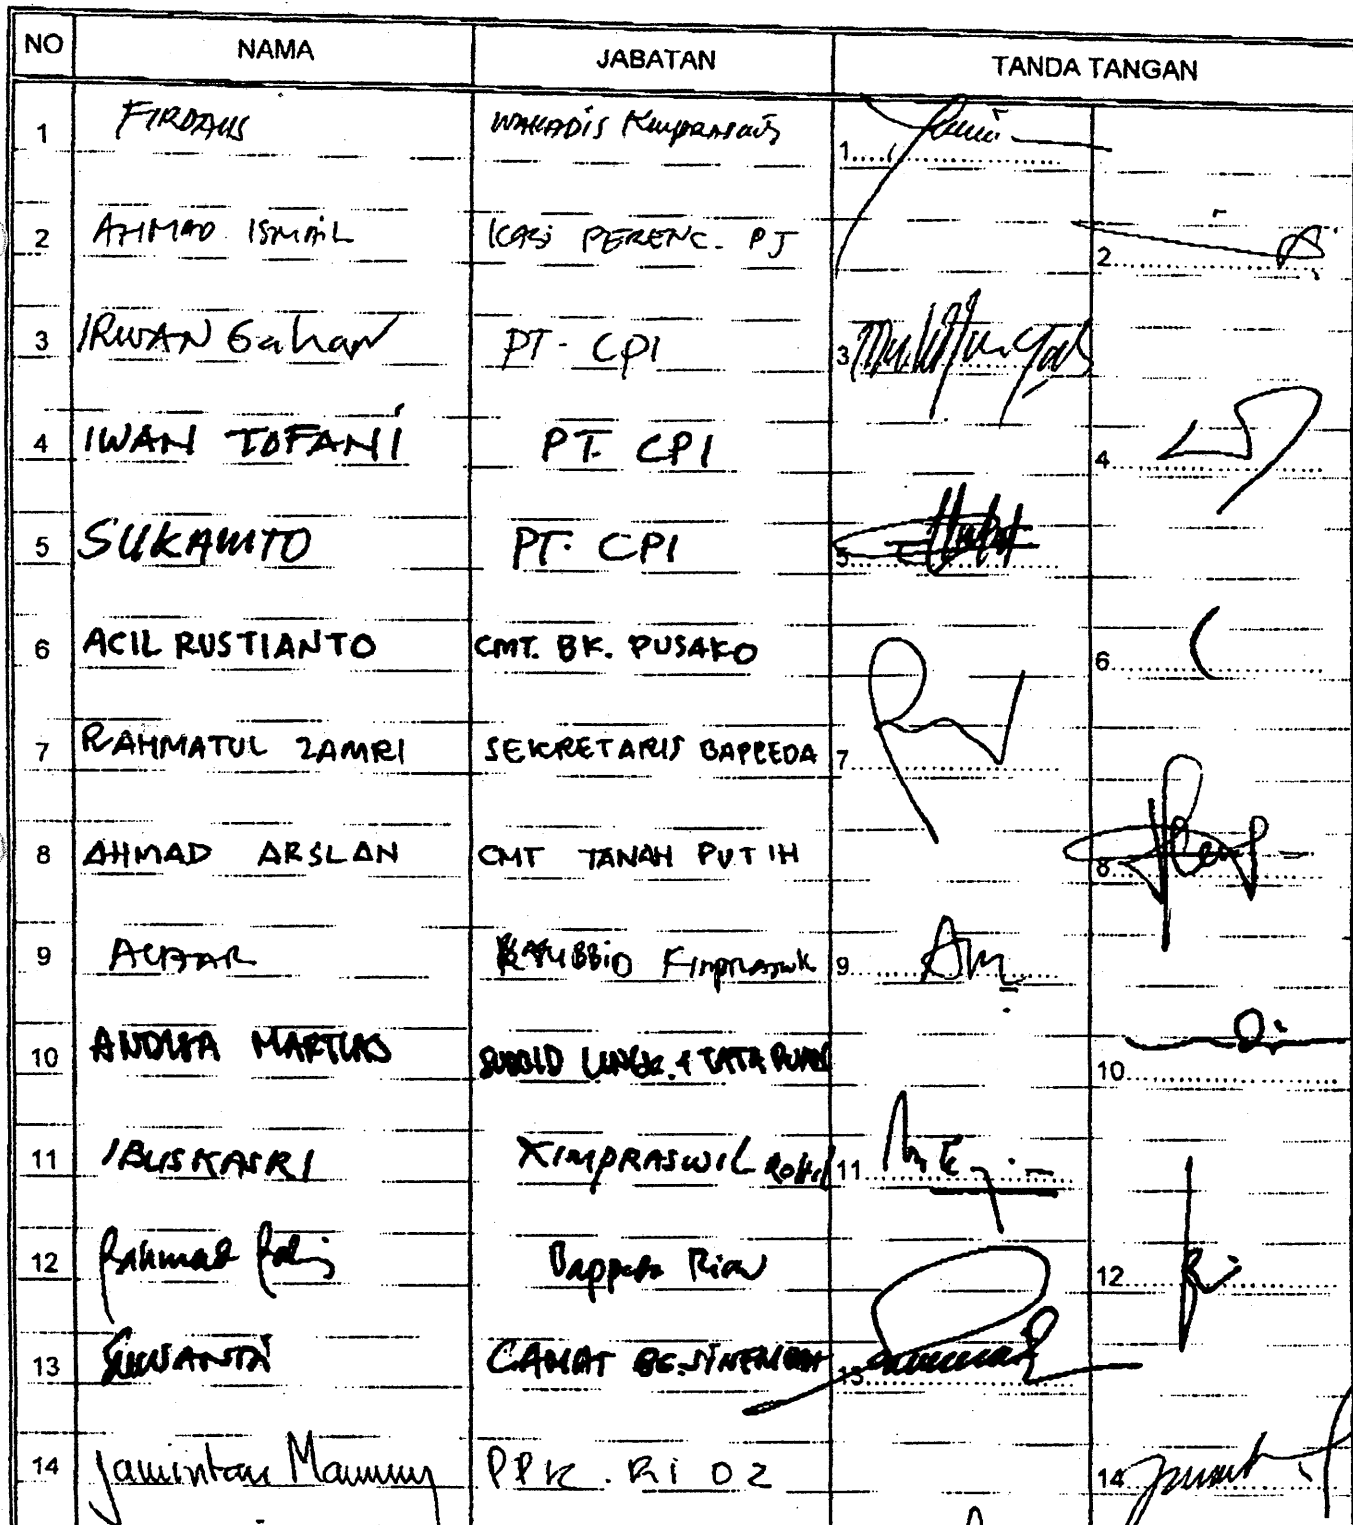 NO NAMA JABATAN TANDA TANGAN
1 FIRDAUS WAKADIS Kimpraswil 1
2 AHMAD ISMAIL KASI PERENC. PJ 2
3 IRWAN Gahar PT. CPI 3
4 IWAN TOFANI PT. CPI 4
5 SUKAMTO PT. CPI 5
6 ACIL RUSTIANTO CMT. BK. PUSAKO 6
7 RAHMATUL ZAMRI SEKRETARIS BAPPEDA 7
8 AHMAD ARSLAN CMT TANAH PUTIH 8
9 KASUBBID Kimpraswil 9
10 MARTIAS SUBBID LINGK. & TATA RUANG 10
11 IBUSKASRI KIMPRASWIL ROHIL 11
12 Rahmat Bappeda Riau 12
13 SUWANDI CAMAT 13
14 PPK. RI 02 14